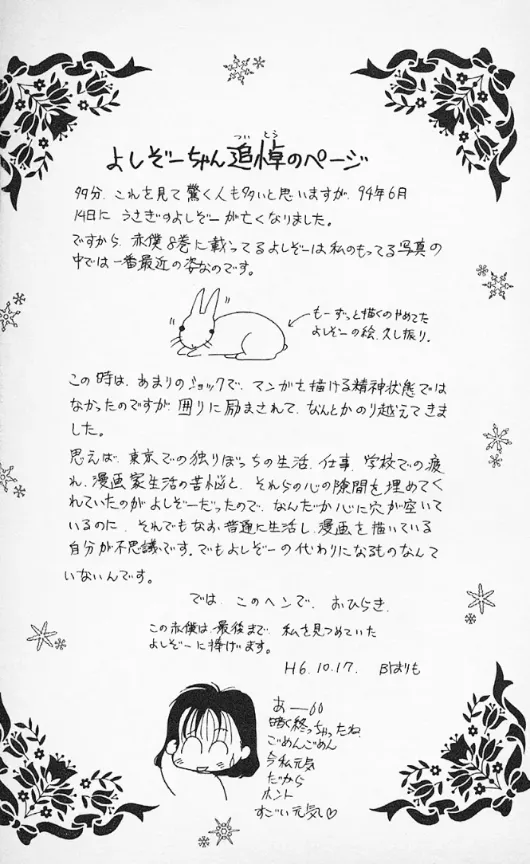 よしぞーちゃん追悼のページ
つい とう
多分、これを見て驚く人も多いと思いますが、94年6月
14日に うさぎのよしぞーが亡くなりました。
ですから、赤僕8巻に載ってるよしぞーは私のもってる写真の
中では一番最近の姿なのです。
もーずっと描くのやめてた
よしぞーの絵、久し振り。
この時は、あまりのショックで、マンガを描ける精神状態では
なかったのですが、囲りに励まされて、なんとかのり越えてきま
した。
思えば、東京での独りぼっちの生活、仕事、学校での疲
れ、漫画家生活の苦悩と、それらの心の隙間を埋めてく
れていたのがよしぞーだったので、なんだか心に穴が空いて
いるのに、それでもなお普通に生活し、漫画を描いている
自分が不思議です。でもよしぞーの代わりになるものなんて
いないんです。
では、このヘンで、おひらき。
この赤僕は、最後まで、私を見つめていた
よしぞーに捧げます。
H6.10.17. Byまりも
あーーー
暗く終っちゃったね、
ごめんごめん
今私元気
だから
ホント
すごい元気♡